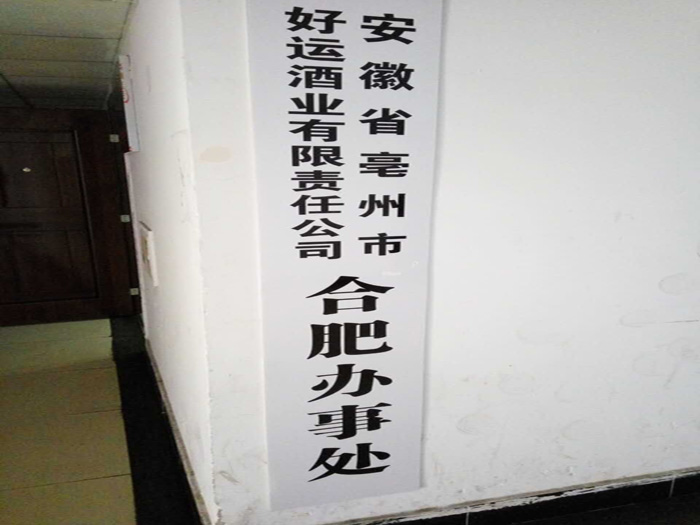 安徽省亳州市
好运酒业有限责任公司
合肥办事处